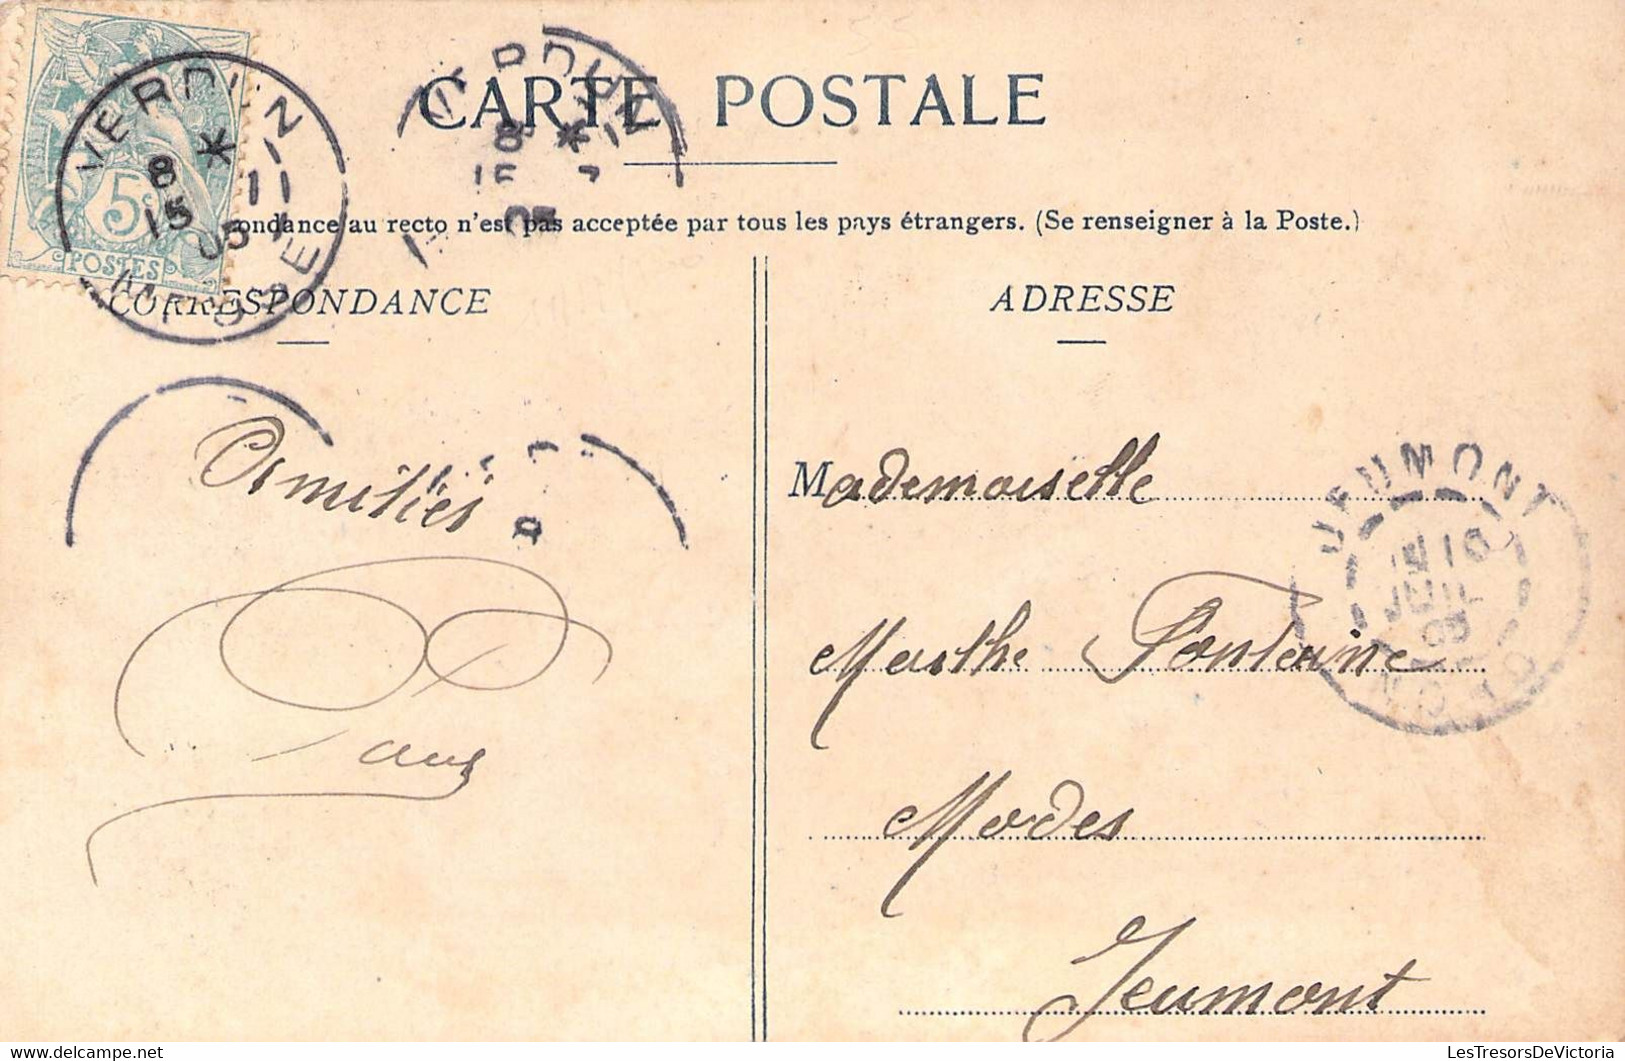 CARTE POSTALE
ondance au recto n'est pas acceptée par tous les pays étrangers. (Se renseigner à la Poste.)
5c
POSTES
VERDUN
8 *
15
05
MEUSE
VERDUN
CORRESPONDANCE
Amitiés
ADRESSE
Mademoiselle
Marthe Fontaine
Modes
Jeumont
JEUMONT
16
JUIL
05
NORD
LesTresorsDeVictoria